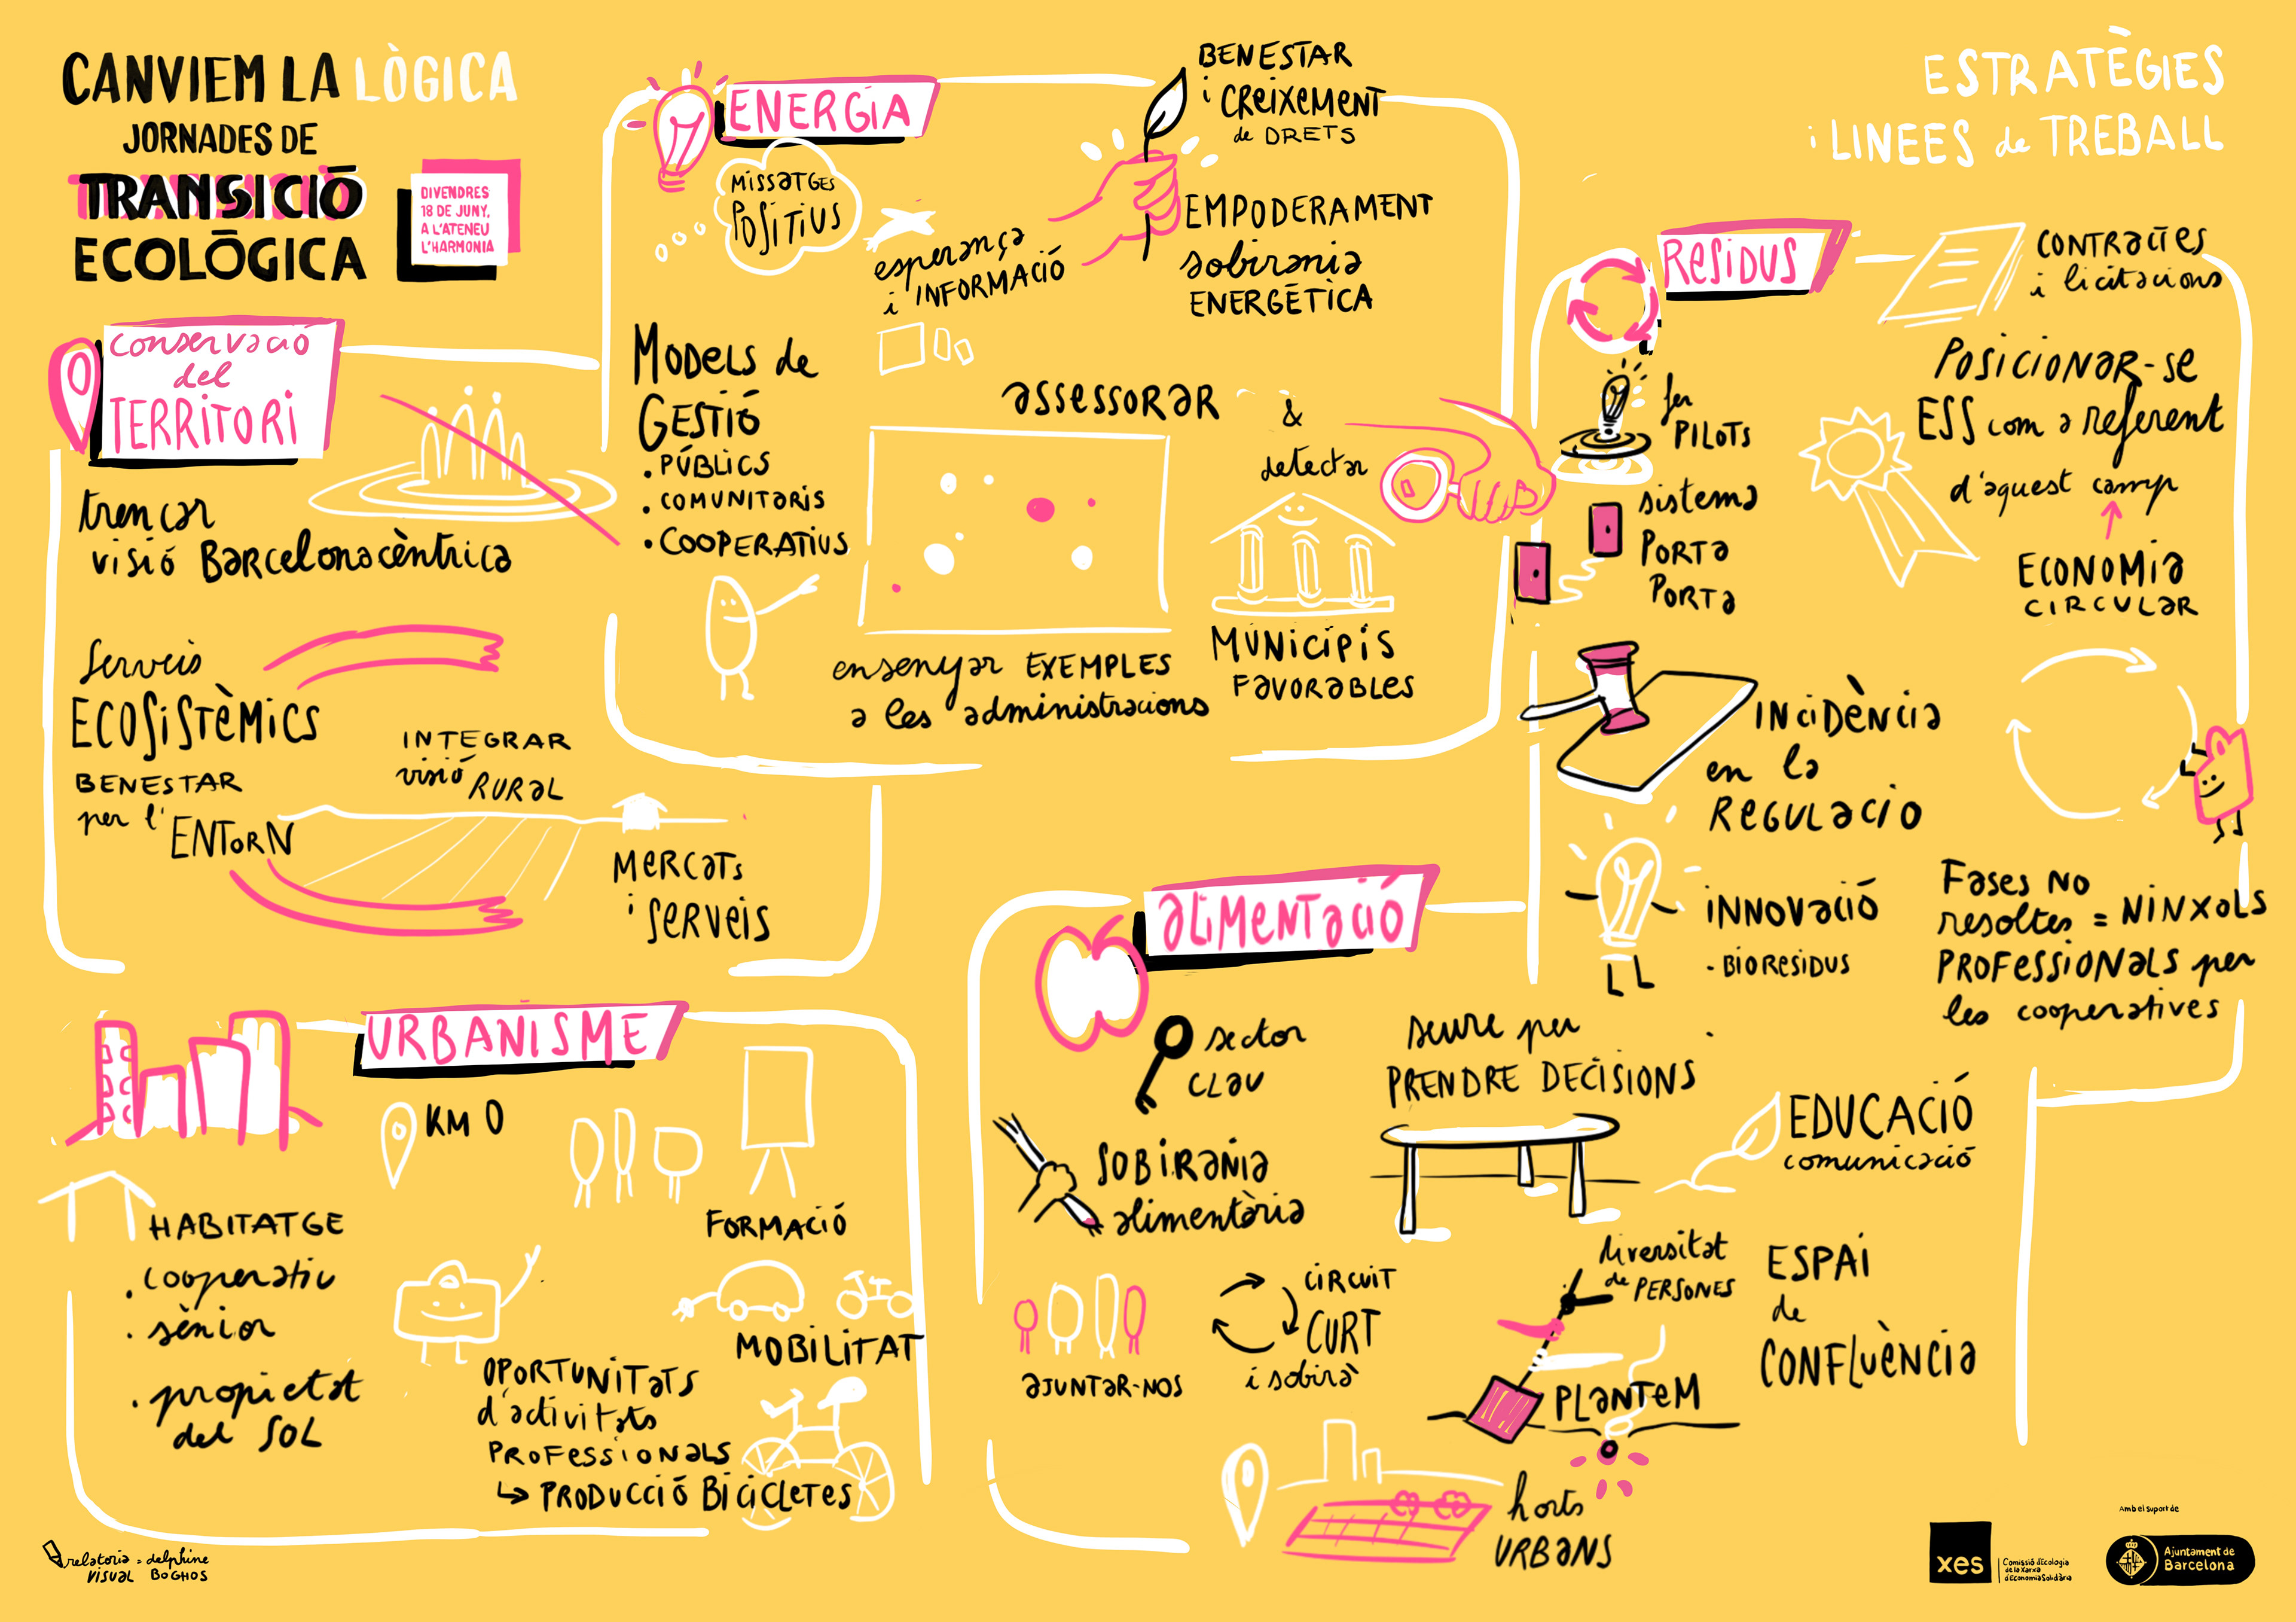 CANVIEM LA LÒGICA
JORNADES DE
TRANSICIÓ
ECOLÒGICA
DIVENDRES
18 DE JUNY,
A L'ATENEU
L'HARMONIA
ESTRATÈGIES
i LINEES de TREBALL
conservació
del
TERRITORI
trencar
visió Barcelonacèntrica
Serveis
ECOSISTÈMICS
BENESTAR
per l'
ENTORN
INTEGRAR
visió RURAL
MERCATS
i SERVEIS
ENERGIA
MISSATGES
POSITIUS
esperança
i INFORMACIÓ
BENESTAR
i CREIXEMENT
de DRETS
EMPODERAMENT
sobirania
ENERGÈTICA
MODELS de
GESTIÓ
. PÚBLICS
. COMUNITARIS
. COOPERATIUS
ASSESSORAR
&
detectar
ensenyar EXEMPLES
a les administracions
MUNICIPIS
FAVORABLES
RESIDUS
CONTRACTES
i licitacions
fer
PILOTS
sistema
PORTA
PORTA
POSICIONAR-SE
ESS com a referent
d'aquest camp
ECONOMIA
CIRCULAR
INCIDÈNCIA
en la
REGULACIO
INNOVACIÓ
- BIORESIDUS
FASES NO
resoltes = NINXOLS
PROFESSIONALS per
les cooperatives
URBANISME
KM 0
FORMACIÓ
HABITATGE
. cooperatiu
. sènior
. propietat
del SOL
MOBILITAT
OPORTUNITATS
d'activitats
PROFESSIONALS
↳ PRODUCCIÓ BICICLETES
ALIMENTACIÓ
sector
CLAU
SOBIRANIA
alimentària
seure per
PRENDRE DECISIONS
EDUCACIÓ
comunicació
AJUNTAR-NOS
CIRCUIT
CURT
i sobirà
diversitat
de PERSONES
PLANTEM
ESPAI
de
CONFLUÈNCIA
horts
URBANS
relatoria = delphine
VISUAL BOGHOS
Amb el suport de
xes
Comissió d'Ecologia
de la Xarxa
d'Economia Solidària
Ajuntament de
Barcelona